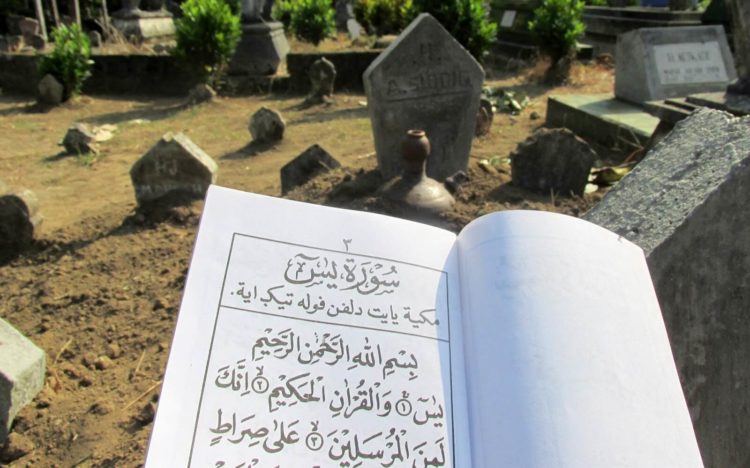 H.
A. SIDDIG
٣
سُوْرَةُ يٰسٓ
مكية يايت دلفن فوله تيݢ اية.
بِسْمِ اللهِ الرَّحْمٰنِ الرَّحِيْمِ
يٰسٓ ﴿١﴾ وَالْقُرْاٰنِ الْحَكِيْمِ ﴿٢﴾ اِنَّكَ
لَمِنَ الْمُرْسَلِيْنَ ﴿٣﴾ عَلٰى صِرَاطٍ